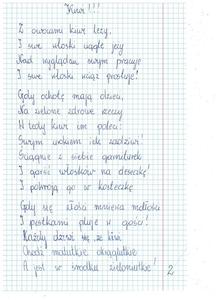 Kiwi!!!
Z owocami kiwi leży,
I swe włoski ciągle jeży
Nad wyglądem swym pracuje
I swe włoski wciąż prostuje!
Gdy ochotę mają dzieci,
Na zielone zdrowe rzeczy
W tedy kiwi im poleca:
Swym urokiem ich
Ściągnie z siebie garniturek
I garść włosków na deseczkę!
I pokroją go w kosteczkę
Gdy się złości mniema małości
I pestkami pluje w gości!
Każdy dziwi się, że kiwi
Choć malutkie okrąglutkie
A jest w środku zieloniutkie!
2